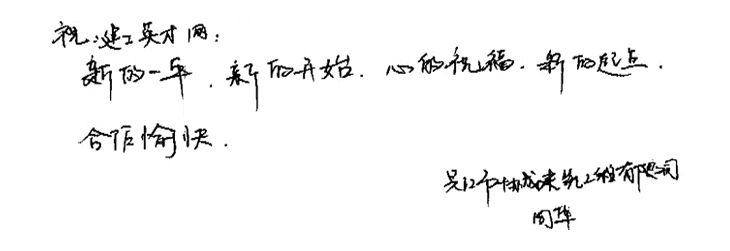 祝:建工英才网:
新的一年.新的开始.心的祝福.新的起点.
合作愉快.
吴江市协成建筑工程有限公司